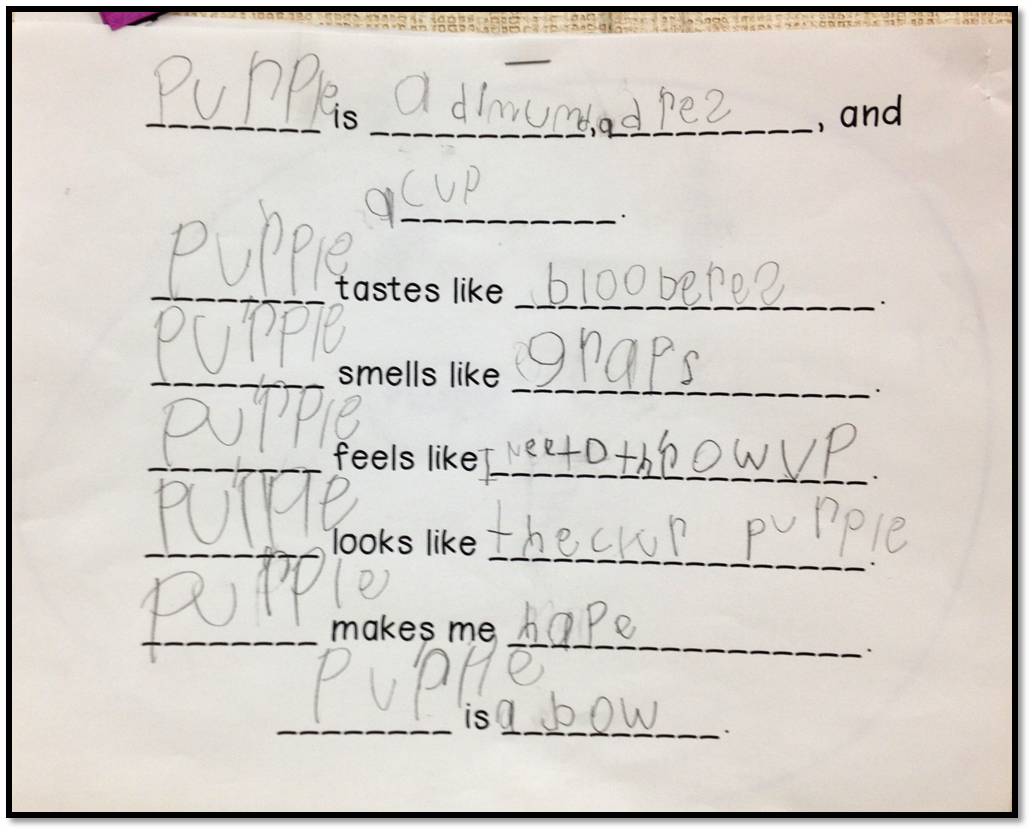 purple is a dimund, a drez, and
a cup.
purple tastes like blooberez.
purple smells like graps.
purple feels like I neeto throw up.
purple looks like the clur purple.
purple makes me hape.
purple is a bow.